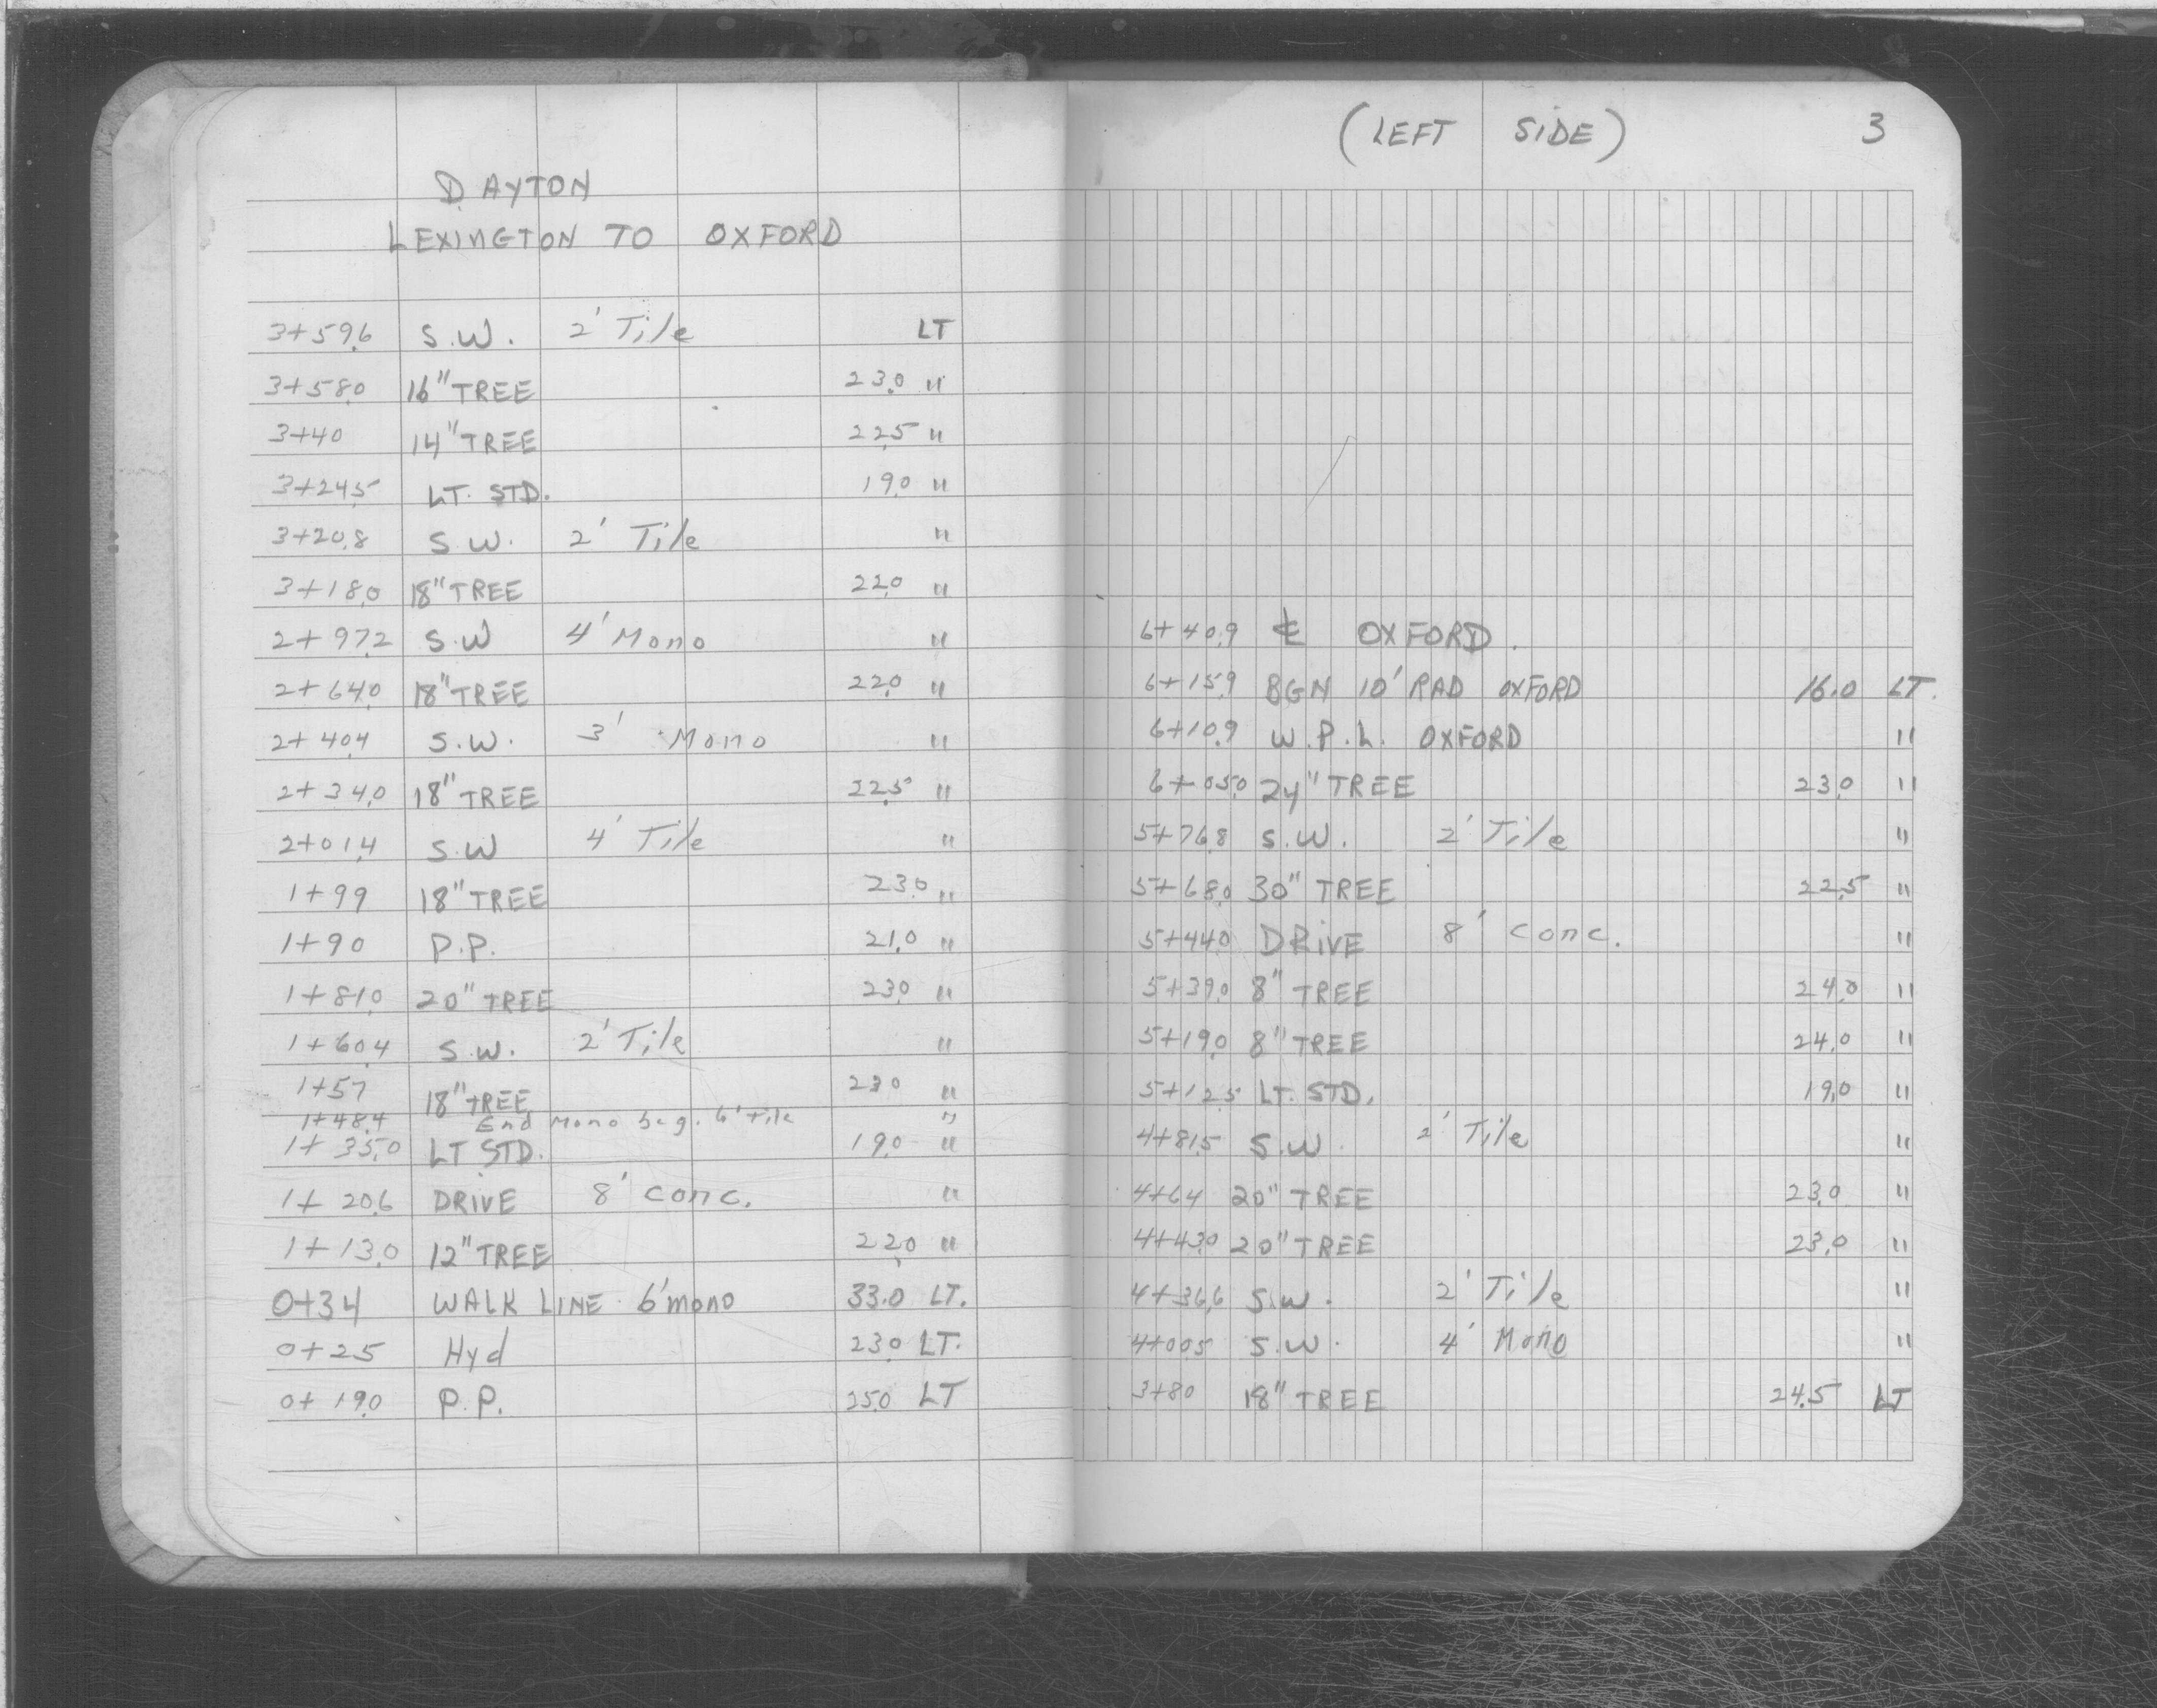 DAYTON
LEXINGTON TO OXFORD
3+59.6 S.W. 2' Tile LT
3+58.0 16" TREE 23.0 "
3+40 14" TREE 22.5 "
3+24.5 LT. STD. 19.0 "
3+20.8 S.W. 2' Tile "
3+18.0 18" TREE 22.0 "
2+97.2 S.W 4' Mono "
2+64.0 18" TREE 22.0 "
2+40.4 S.W. 3' Mono "
2+34.0 18" TREE 22.5 "
2+01.4 S.W 4' Tile "
1+99 18" TREE 23.0 "
1+90 P.P. 21.0 "
1+81.0 20" TREE 23.0 "
1+60.4 S.W. 2' Tile "
1+57 18" TREE 23.0 "
1+48.4 End Mono beg. 6' Tile "
1+35.0 LT STD. 19.0 "
1+20.6 DRIVE 8' conc. "
1+13.0 12" TREE 22.0 "
0+34 WALK LINE 6' mono 33.0 LT.
0+25 Hyd 23.0 LT.
0+19.0 P.P. 25.0 LT
(LEFT SIDE) 3
6+40.9 ℄ OXFORD.
6+15.9 BGN 10' RAD OXFORD 16.0 LT.
6+10.9 W.P.L. OXFORD "
6+05.0 24" TREE 23.0 "
5+76.8 S.W. 2' Tile "
5+68.0 30" TREE 22.5 "
5+44.0 DRIVE 8' conc. "
5+39.0 8" TREE 24.0 "
5+19.0 8" TREE 24.0 "
5+12.5 LT. STD. 19.0 "
4+81.5 S.W. 2' Tile "
4+64 20" TREE 23.0 "
4+43.0 20" TREE 23.0 "
4+36.6 S.W. 2' Tile "
4+00.5 S.W. 4' Mono "
3+80 18" TREE 24.5 LT